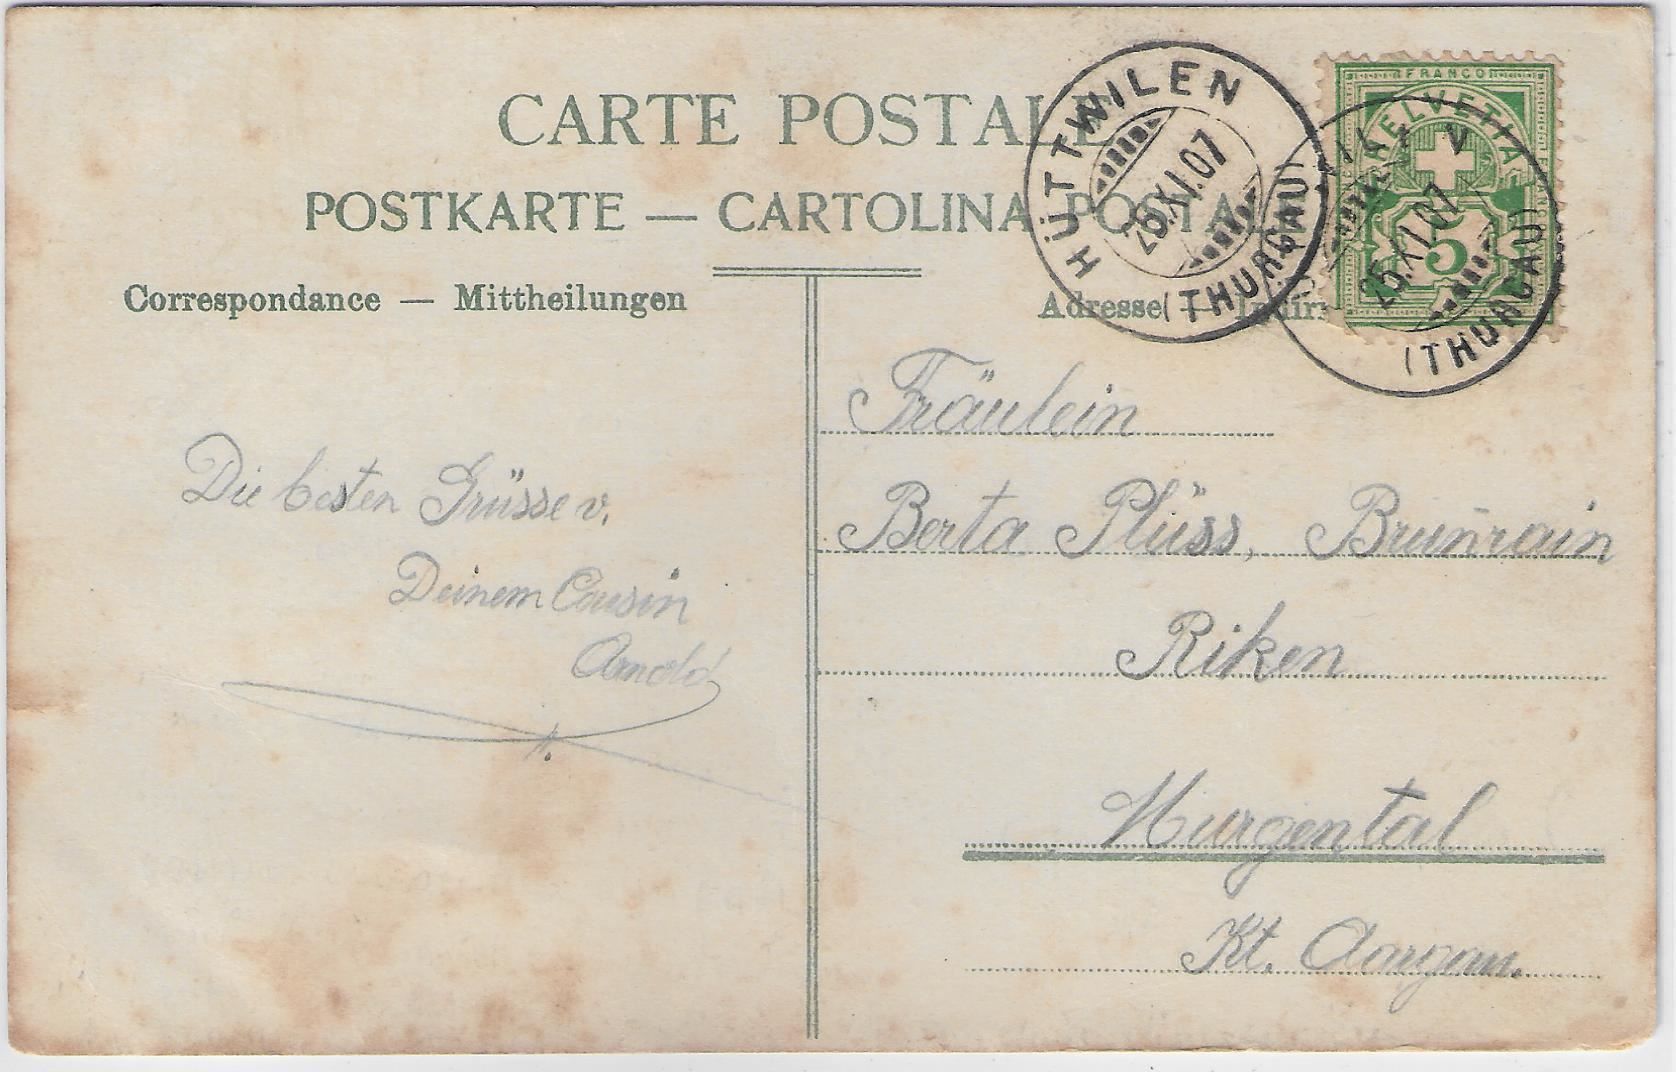 CARTE POSTALE
POSTKARTE — CARTOLINA POSTA
Correspondance — Mittheilungen
Adresse —
HÜTTWILEN
25.XI.07
(THURGAU)
FRANCO
HELVETIA
5
25.XI.07
(THURGAU)
Die besten Grüsse v.
Deinem Cousin
Arnold
Fräulein
Berta Plüss, Brun̄rain
Riken
Murgental
Kt. Aargau.